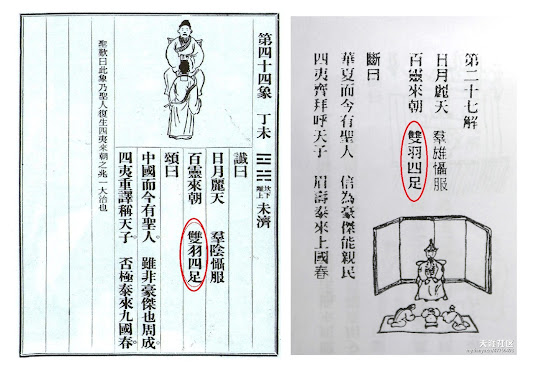 第四十四象 丁未
坎下
離上 未濟
讖曰
日月麗天 羣陰懾服
百靈來朝 雙羽四足
頌曰
中國而今有聖人 雖非豪傑也周成
四夷重譯稱天子 否極泰來九國春
聖歎曰此象乃聖人復生四夷來朝之兆一大治也
第二十七解
日月麗天 羣雄懾服
百靈來朝 雙羽四足
斷曰
華夏而今有聖人 信為豪傑能親民
四夷齊拜呼天子 眉壽泰來上國春
天涯社区